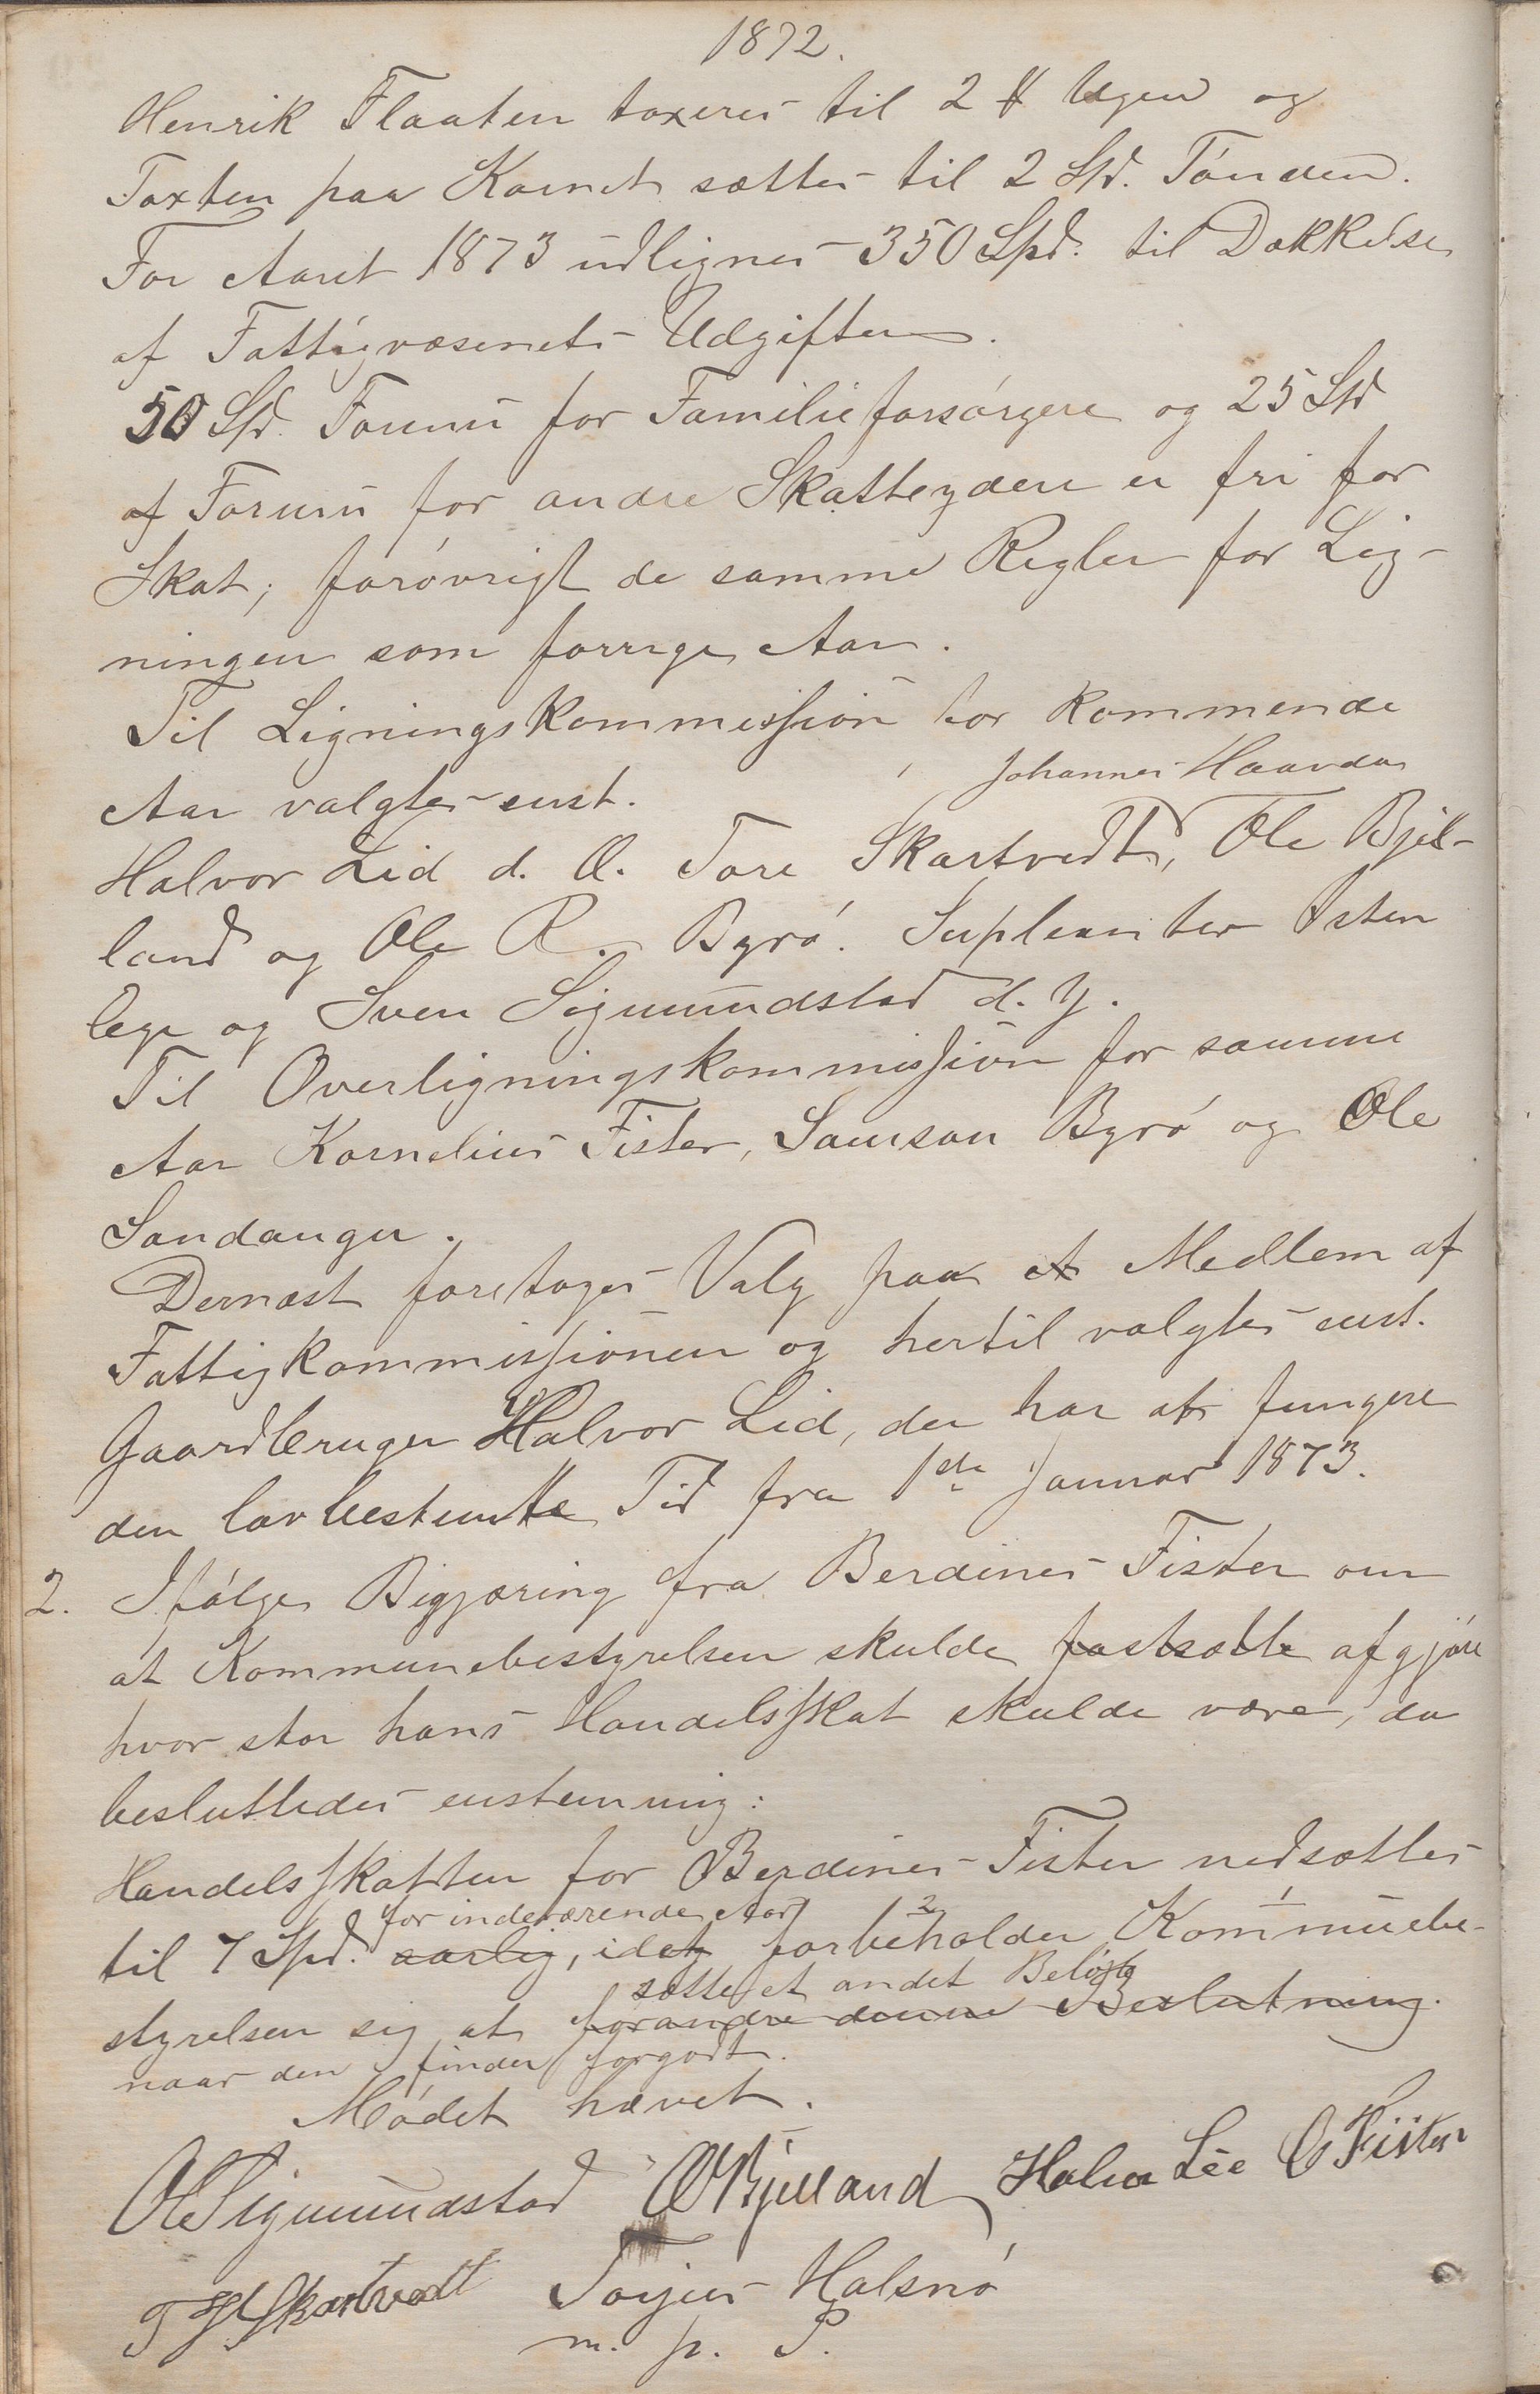 1872.
Henrik Flaaten taxeres til 2 ₰ Ugen og
Taxten paa Kornet sættes til 2 Spd. Tønden.
For Aaret 1873 udlignes 350 Spd. til Dækkelse
af Fattigvæsenets Udgifter.
50 Spd. Formu for Familieforsørgere og 25 Spd
af Formu for andre Skatteydere er fri for
Skat; forøvrigt de samme Regler for Lig-
ningen som forrige Aar.
Til Ligningskommission for kommende
Aar valgtes enst. Johannes Haavda
Halvor Lid d. Æ. Tore Skartvedt, Ole Bjel-
land og Ole R. Byrø. Supleanter Østen
Lege og Sven Sigmundstad d. y.
Til Overligningskommission for samme
Aar Kornelius Fister, Samson Byrø og Ole
Sandanger.
Dernæst foretoges Valg paa et Medlem af
Fattigkommissionen og hertil valgtes enst.
Gaardbruger Halvor Lid, der har at fungere
den lovbestemte Tid fra 1ste Januar 1873.
2. Ifølge Begjæring fra Berdines Fister om
at Kommunebestyrelsen skulde fastsætte afgjøre
hvor stor hans Handelsskat skulde være, da
besluttedes enstemmig:
Handelsskatten for Berdines Fister nedsættes
for indeværende Aar
til 7 Spd. aarlig, idet forbeholder Kommunebe-
sætte et andet Beløb
styrelsen sig at forandre denne Beslutning.
naar den finder forgodt.
Mødet hævet.
Ole Sigmundstad O Bjelland Halvor Lie C Fister
T H Skartvedt Torjus Halsnø
m. p. P.